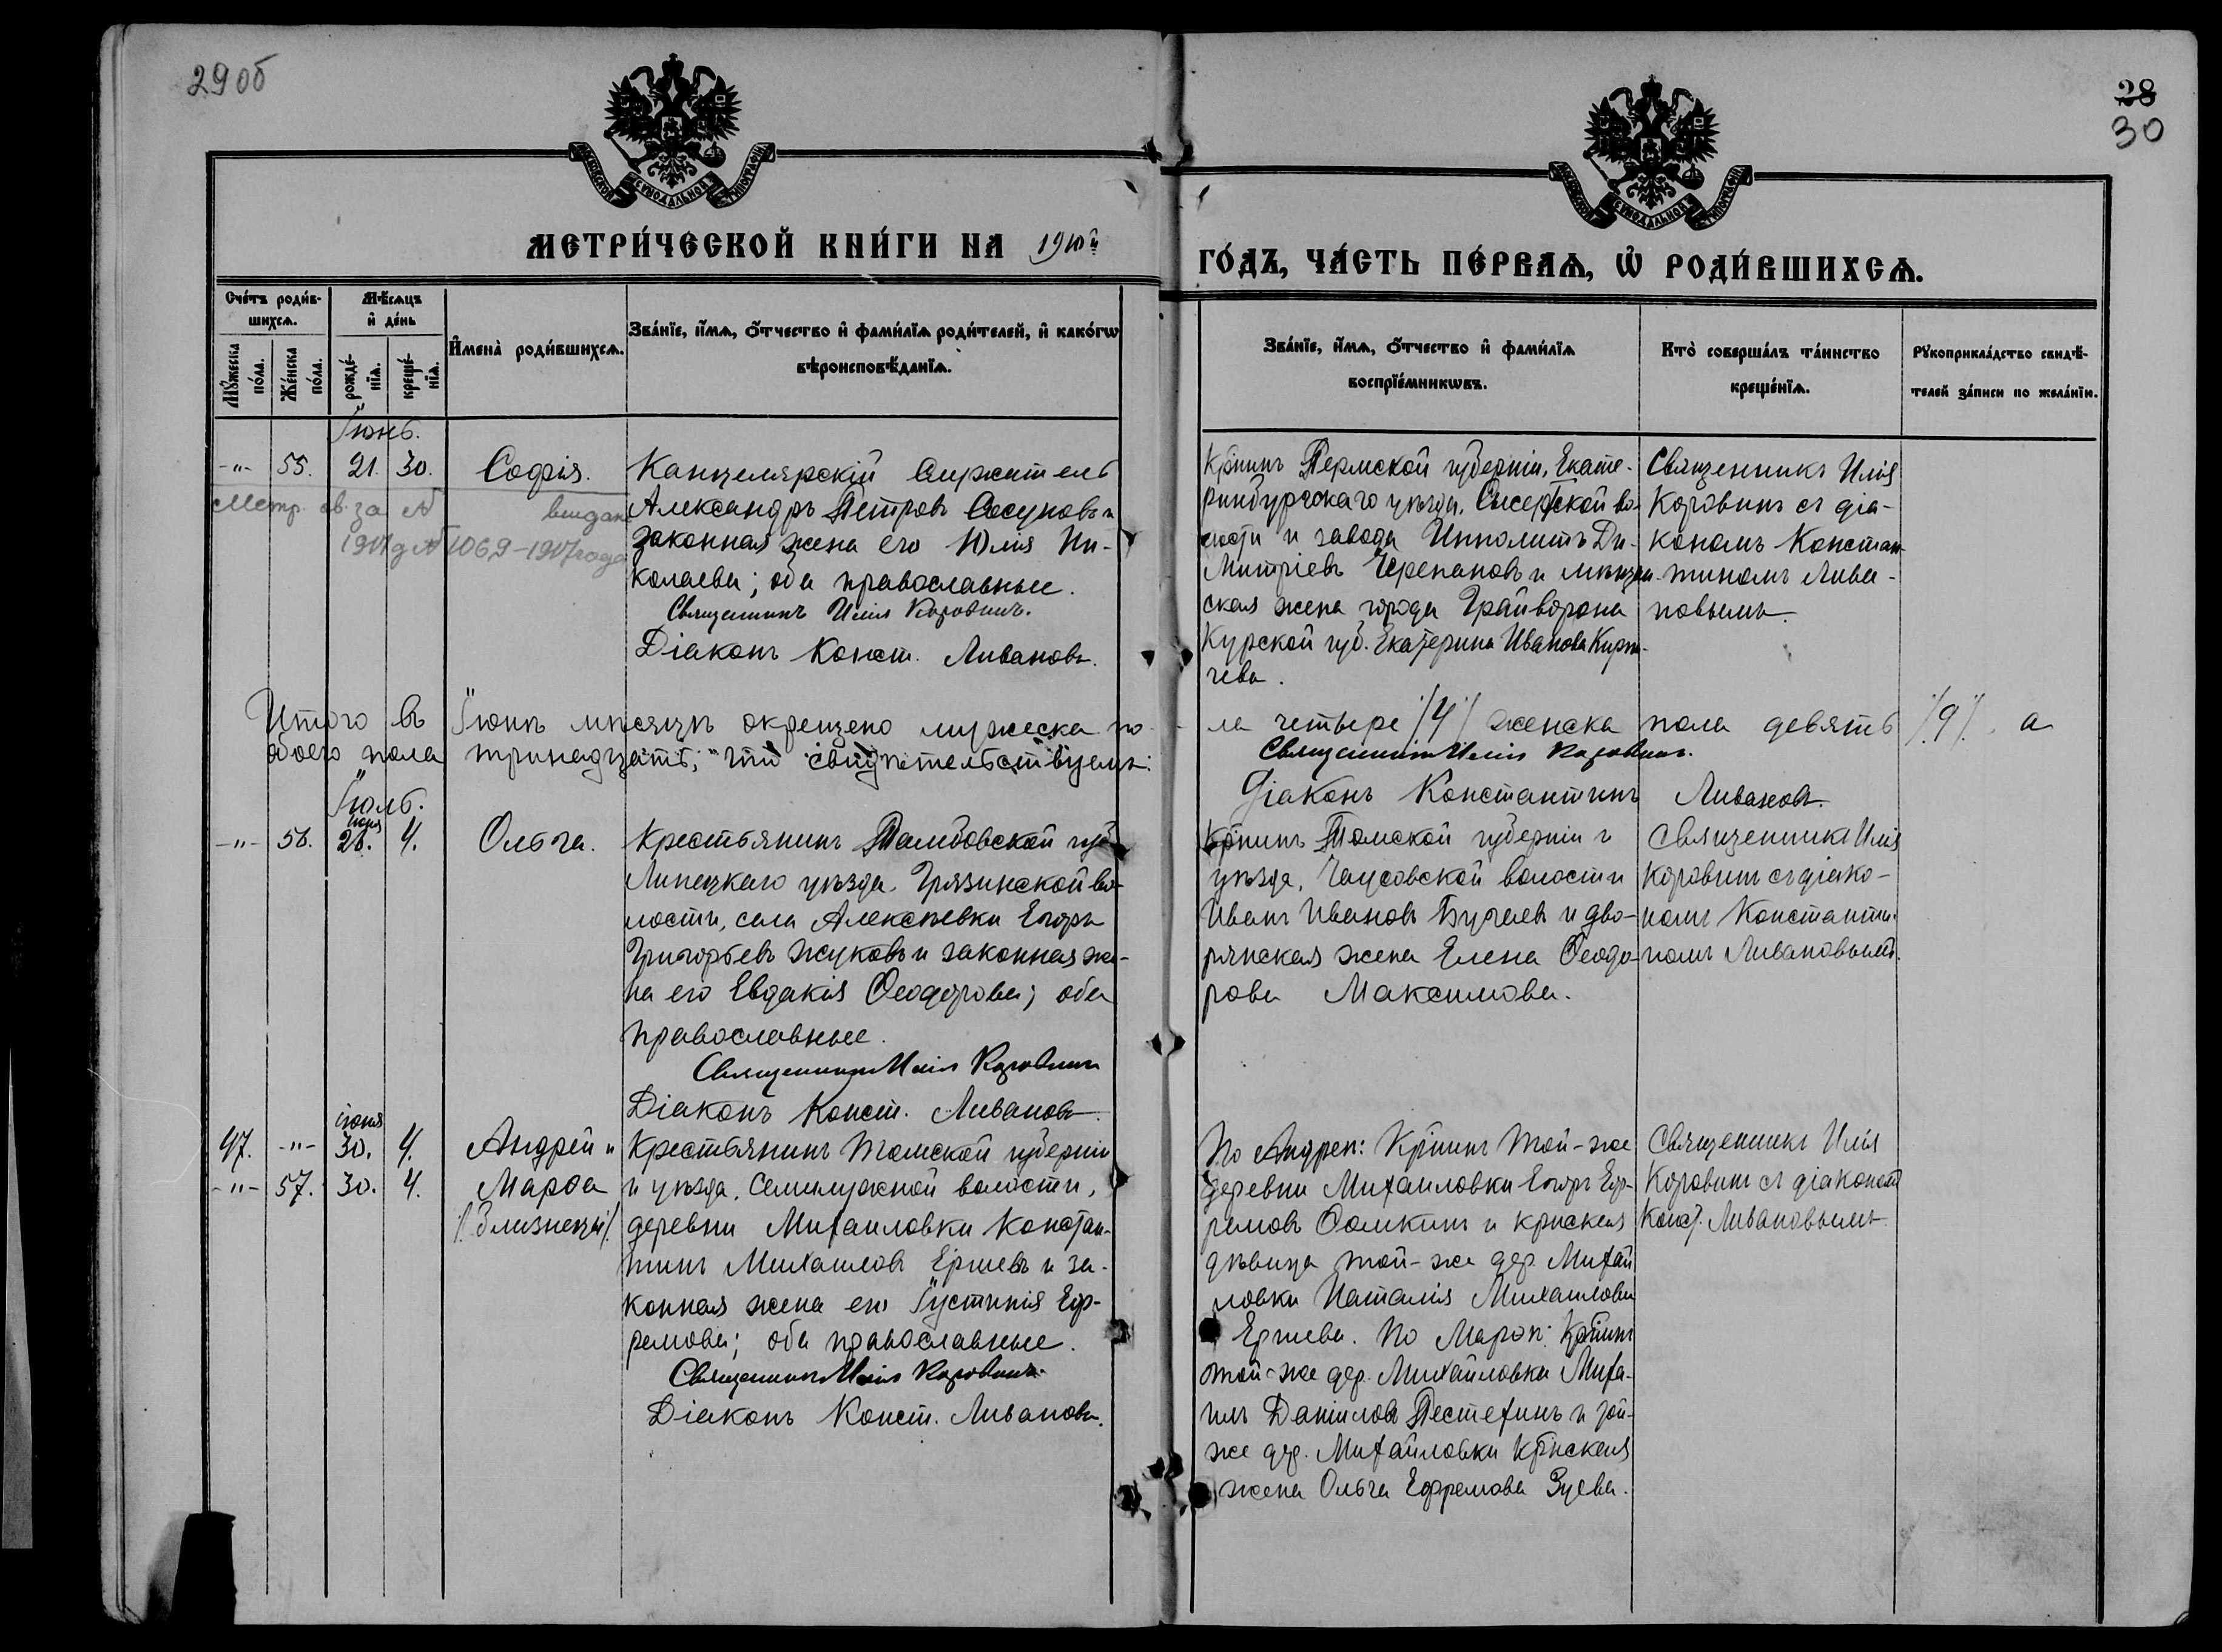 29 об
28
30
МОСКОВСКОЙ СУНОДАЛЬНОЙ ТИПОГРАФІИ
МОСКОВСКОЙ СУНОДАЛЬНОЙ ТИПОГРАФІИ
МЕТРИ́ЧЕСКОЙ КНИ́ГИ НА 1910й
ГО́ДЪ, ЧА́СТЬ ПЕ́РВАѦ, Ѡ҆ РОДИ́ВШИХСѦ.
Сче́тъ роди́в-
шихсѧ.
Мꙋ́жеска
по́ла.
Же́нска
по́ла.
Мѣ́сѧцъ
и҆ де́нь
рожде́-
нїѧ.
креще́-
нїѧ.
И҆мена̀ роди́вшихсѧ.
Зва́нїе, и҆́мѧ, ѻ҆́тчество и҆ фами́лїѧ роди́телей, и҆ како́гѡ
вѣроисповѣ́данїѧ.
Зва́нїе, и҆́мѧ, ѻ҆́тчество и҆ фами́лїѧ
воспрїе́мникѡвъ.
Кто̀ соверша́лъ та́инство
креще́нїѧ.
Рꙋкоприкла́дство свидѣ́-
телей за́писи по жела́нїю.
Іюнь.
-"- 55. 21. 30. Софія.
Метр. св. за №
выдано
1069-1917 года
Канцелярскій служитель
Александръ Петровъ Сосуновъ и
законная жена его Юлія Ни-
колаева; оба православные.
Священникъ Илія Коровинъ.
Діаконъ Конст. Ливановъ.
Кр̃нинъ Пермской губерніи, Екате-
ринбургскаго уѣзда, Сысертской во-
лости и завода Ипполитъ Ди-
митріевъ Черепановъ и мѣщан-
ская жена города Грайворона
Курской губ. Екатерина Иванова Кирпи-
чева.
Священникъ Илія
Коровинъ съ діа-
кономъ Констан-
тиномъ Лива-
новымъ.
Итого въ Іюнѣ мѣсяцѣ окрещено мужеска по-
ла четыре /4/ женска пола девять /9/, а
обоего пола тринадцать, что свидѣтельствуемъ:
Священникъ Илія Коровинъ.
Діаконъ Константинъ Ливановъ.
Іюль.
іюня
-"- 56. 26. 4. Ольга.
Крестьянинъ Тамбовской губ.
Липецкаго уѣзда, Грязинской во-
лости, села Алексѣевки Егоръ
Григорьевъ Жуковъ и законная же-
на его Евдокія Ѳеодорова; оба
православные.
Священникъ Илія Коровинъ
Діаконъ Конст. Ливановъ.
Кр̃нинъ Томской губерніи и
уѣзда, Чаусовской волости
Иванъ Ивановъ Бугаевъ и дво-
рянская жена Елена Ѳеодо-
рова Максимова.
Священникъ Илія
Коровинъ съ діако-
номъ Константи-
номъ Ливановымъ.
іюня
47. -"- 30. 4. Андрей и
-"- 57. 30. 4. Марѳа
/близнецы/.
Крестьянинъ Томской губерніи
и уѣзда, Семилужной волости,
деревни Михаиловки Констан-
тинъ Михаиловъ Ершевъ и за-
конная жена его Іустинія Еф-
ремова; оба православные.
Священникъ Илія Коровинъ.
Діаконъ Конст. Ливановъ.
По Андреѣ: Кр̃нинъ той-же
деревни Михаиловки Егоръ Еф-
ремовъ Ѳомкинъ и кр̃нская
дѣвица той-же дер. Михай-
ловки Наталія Михаилова
Ершева. По Марѳѣ: Кр̃нинъ
той-же дер. Михайловки Миха-
илъ Даниловъ Пестехинъ и той-
же дер. Михайловки Кр̃нская
жена Ольга Ефремова Зуева.
Священникъ Илія
Коровинъ съ діакономъ
Конст. Ливановымъ